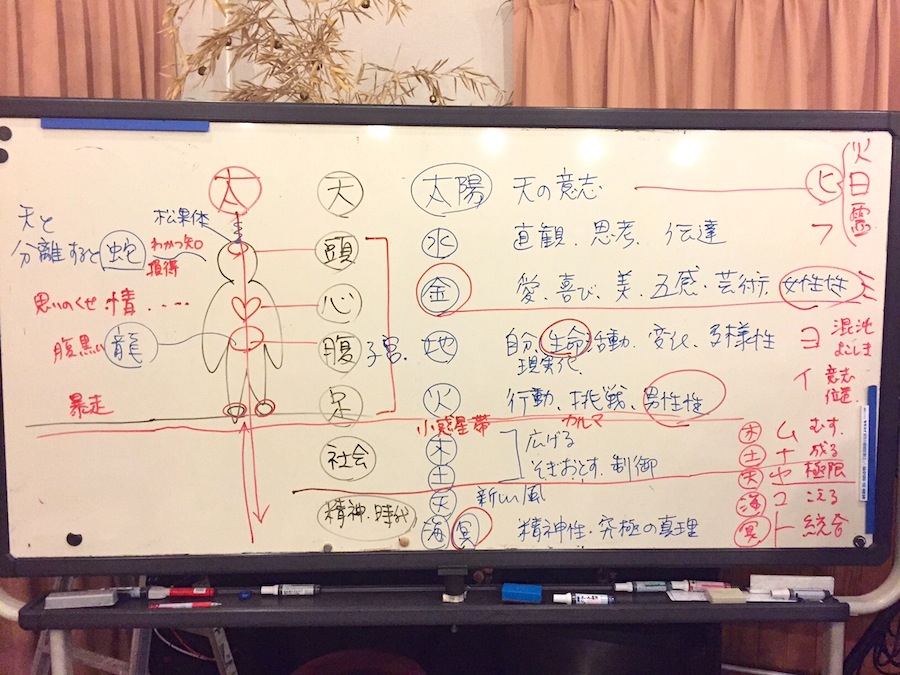 太 天 太陽 天の意志 ヒ 火日霊
天と
分離すると 蛇
松果体
わかつ知
損得
頭 水 直観、思考、伝達 フ
思いのくせ 情 ・・・・
心 金 愛、喜び、美、五感、芸術、女性性 ミ
腹黒い 龍
腹 子宮、地 自分、生命活動、変化、多様性 ヨ 混沌
よこしま
現実化
暴走
足 火 行動、挑戦、男性性 イ 意志
位置
小惑星帯 カルマ
社会 木 広げる 木 ム むす
土 そぎおとす、制御 土 ナ 成る
天 新しい風 天 ヤ 極限
精神、時代 海 冥 精神性・究極の真理 海 コ こえる
冥 ト 統合